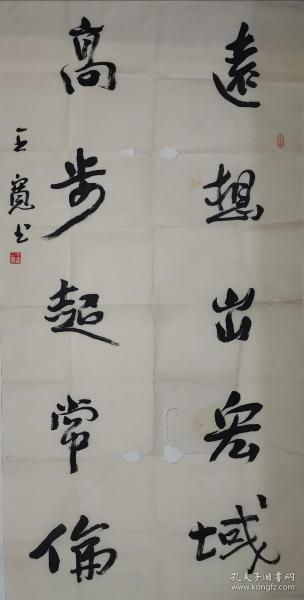 遠想出宏域
高步起常倫
王寬书
孔夫子旧书网